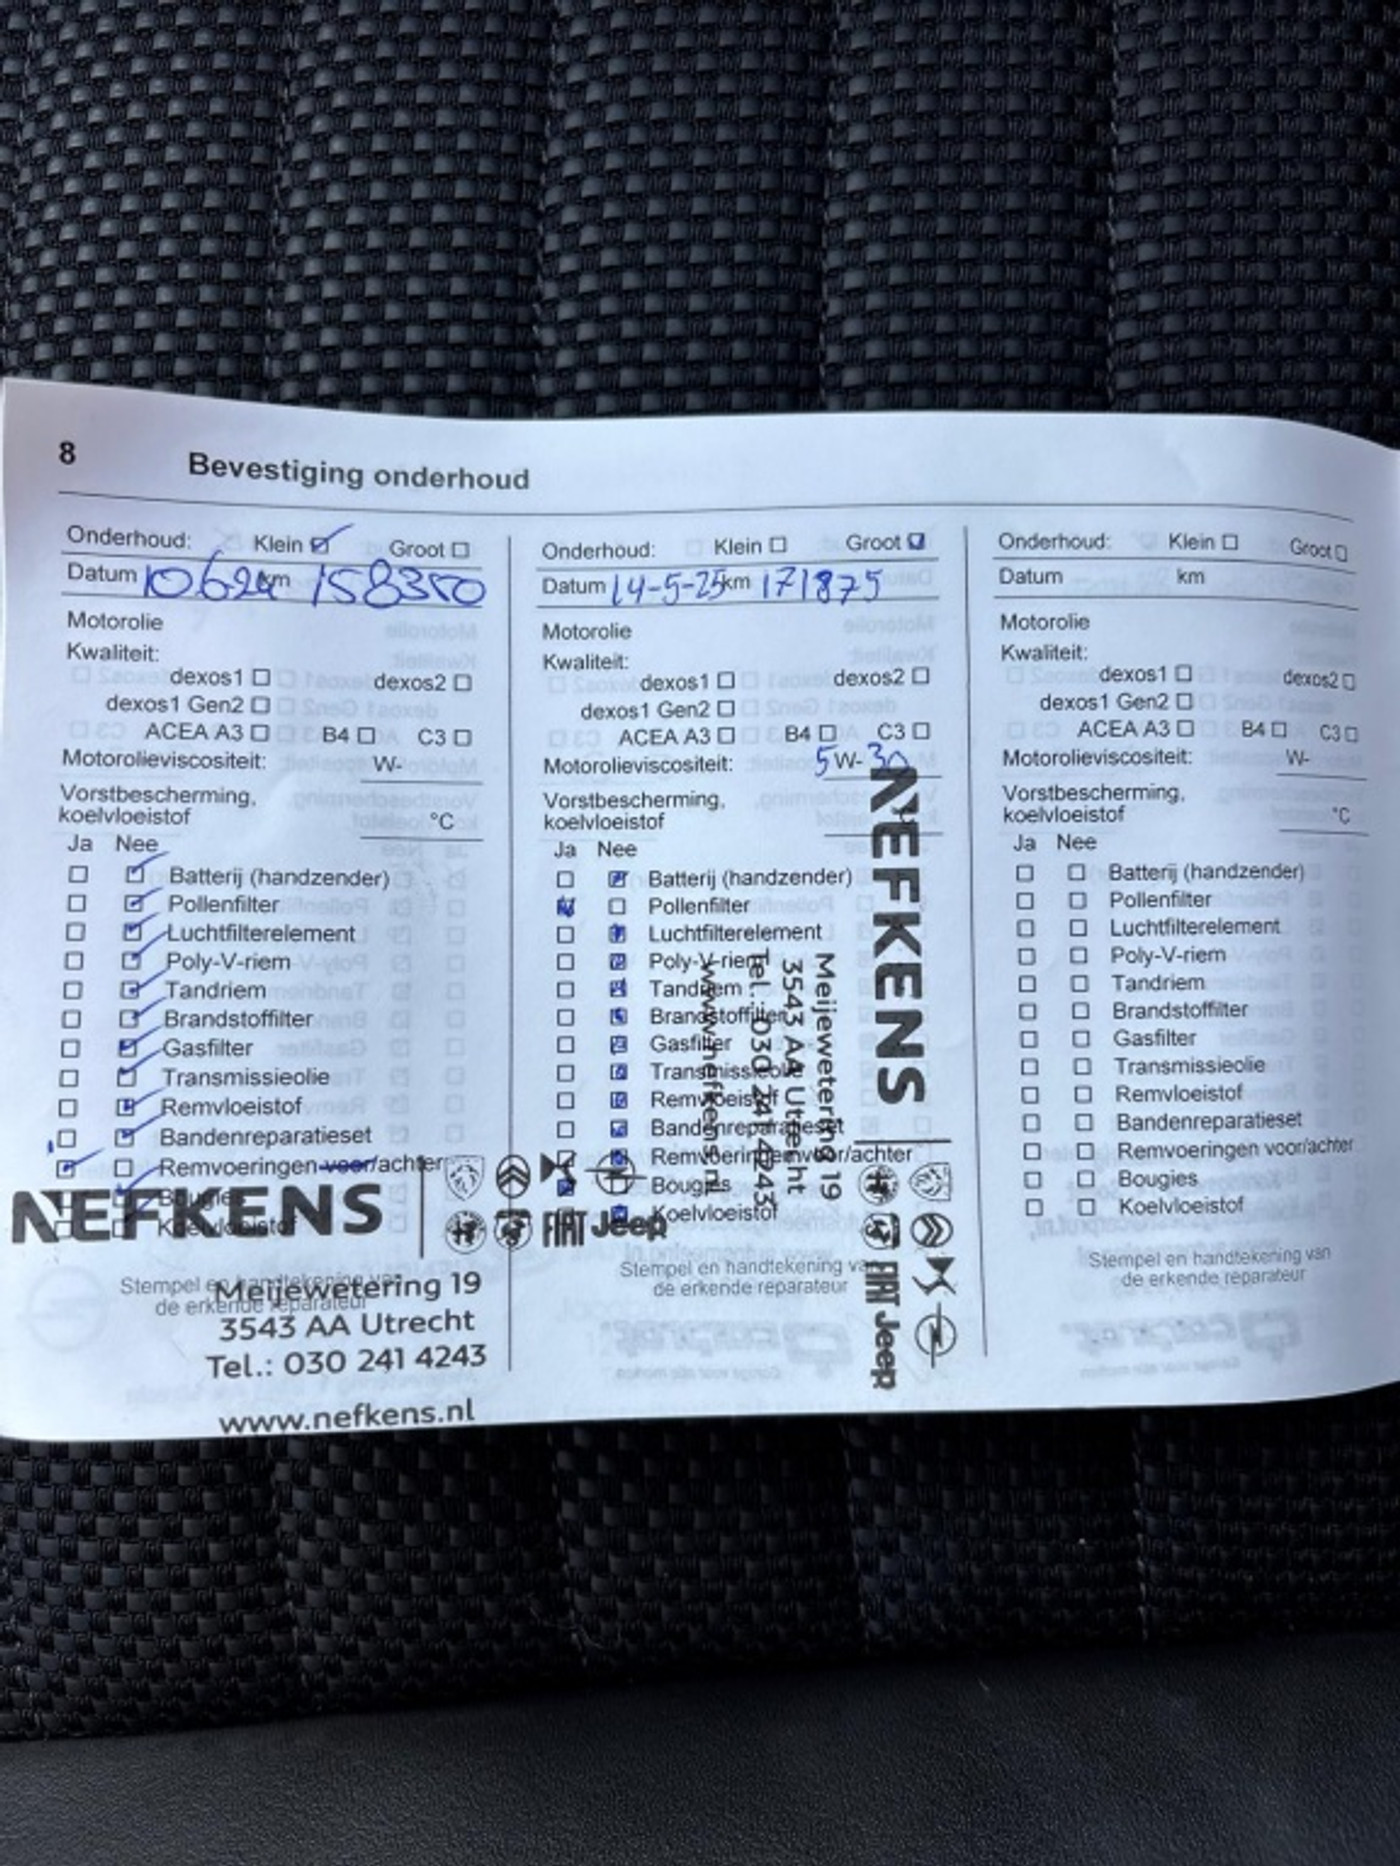 8 Bevestiging onderhoud
Onderhoud: Klein ☑ Groot ☐
Datum 10624 km 158350
Motorolie
Kwaliteit:
dexos1 ☐ dexos2 ☐
dexos1 Gen2 ☐
ACEA A3 ☐ B4 ☐ C3 ☐
Motorolieviscositeit: W-
Vorstbescherming,
koelvloeistof °C
Ja Nee
☐ ☑ Batterij (handzender)
☐ ☑ Pollenfilter
☐ ☑ Luchtfilterelement
☐ ☑ Poly-V-riem
☐ ☑ Tandriem
☐ ☑ Brandstoffilter
☐ ☑ Gasfilter
☐ ☑ Transmissieolie
☐ ☑ Remvloeistof
☐ ☑ Bandenreparatieset
☑ ☐ Remvoeringen voor/achter
Bougies
Koelvloeistof
NEFKENS FIAT Jeep
Stempel en handtekening van
de erkende reparateur
Meijewetering 19
3543 AA Utrecht
Tel.: 030 241 4243
www.nefkens.nl
Onderhoud: Klein ☐ Groot ☑
Datum 14-5-25 km 171875
Motorolie
Kwaliteit:
dexos1 ☐ dexos2 ☐
dexos1 Gen2 ☐
ACEA A3 ☐ B4 ☐ C3 ☐
Motorolieviscositeit: 5 W- 30
Vorstbescherming,
koelvloeistof °C
Ja Nee
☐ ☑ Batterij (handzender)
☑ ☐ Pollenfilter
☐ ☑ Luchtfilterelement
☐ ☑ Poly-V-riem
☐ ☑ Tandriem
☐ ☑ Brandstoffilter
☐ ☑ Gasfilter
☐ ☑ Transmissieolie
☐ ☑ Remvloeistof
☐ ☑ Bandenreparatieset
☐ ☑ Remvoeringen voor/achter
☑ ☐ Bougies
☑ Koelvloeistof
Stempel en handtekening van
de erkende reparateur
NEFKENS FIAT Jeep
Meijewetering 19
3543 AA Utrecht
Tel.: 030 241 4243
www.nefkens.nl
Onderhoud: Klein ☐ Groot ☐
Datum km
Motorolie
Kwaliteit:
dexos1 ☐ dexos2 ☐
dexos1 Gen2 ☐
ACEA A3 ☐ B4 ☐ C3 ☐
Motorolieviscositeit: W-
Vorstbescherming,
koelvloeistof °C
Ja Nee
☐ ☐ Batterij (handzender)
☐ ☐ Pollenfilter
☐ ☐ Luchtfilterelement
☐ ☐ Poly-V-riem
☐ ☐ Tandriem
☐ ☐ Brandstoffilter
☐ ☐ Gasfilter
☐ ☐ Transmissieolie
☐ ☐ Remvloeistof
☐ ☐ Bandenreparatieset
☐ ☐ Remvoeringen voor/achter
☐ ☐ Bougies
☐ ☐ Koelvloeistof
Stempel en handtekening van
de erkende reparateur